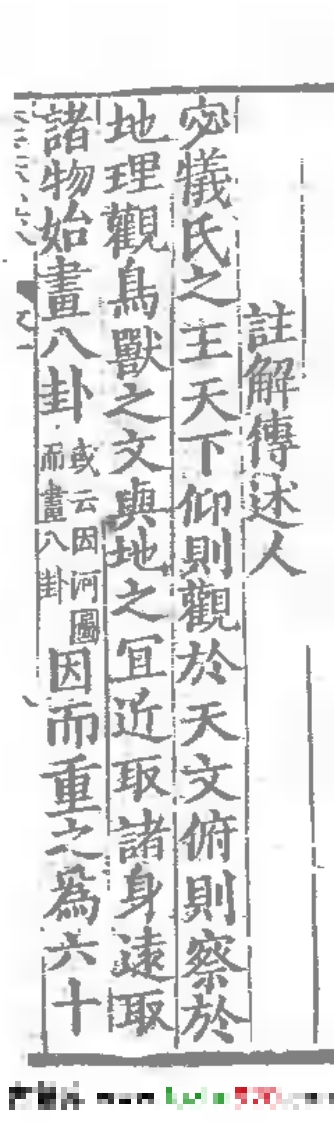 註解傳述人
宓犧氏之王天下仰則觀於天文俯則察於
地理觀鳥獸之文與地之冝近取諸身逺取
諸物始畫八卦或云因河圖而畫八卦因而重之爲六十